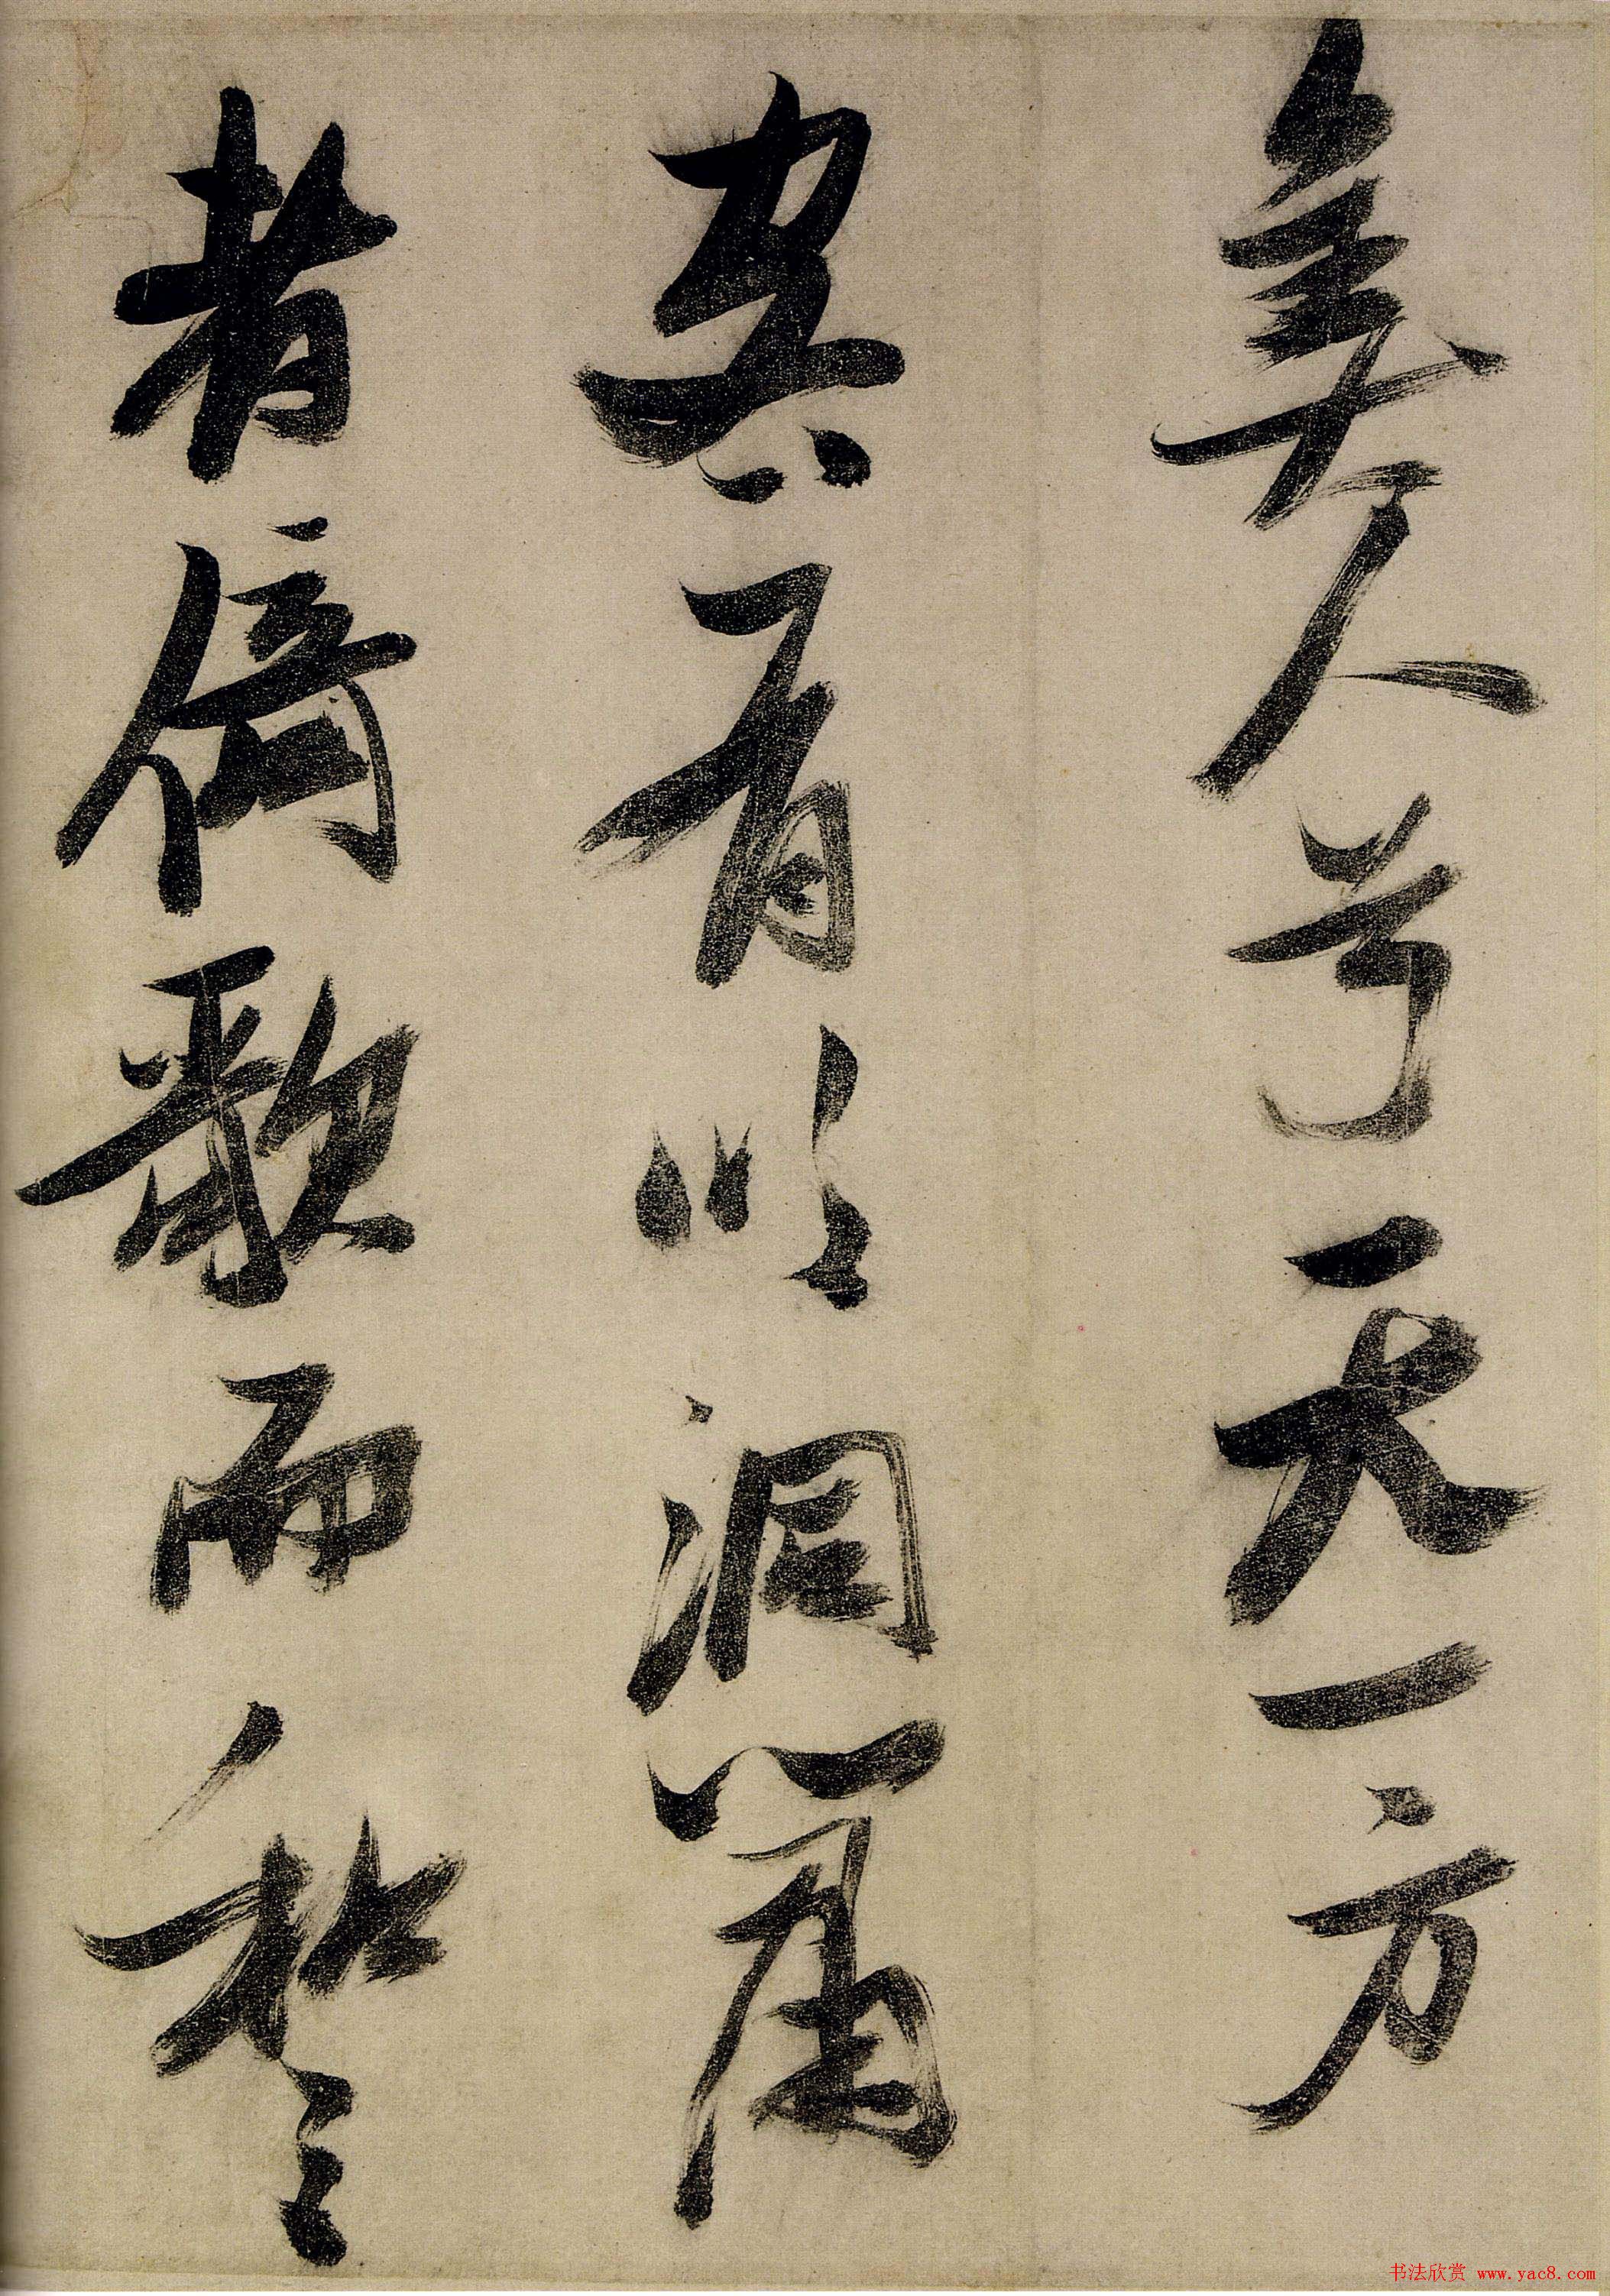 美人兮天一方
客有吹洞簫
者倚歌而和之
书法欣赏 www.yac8.com